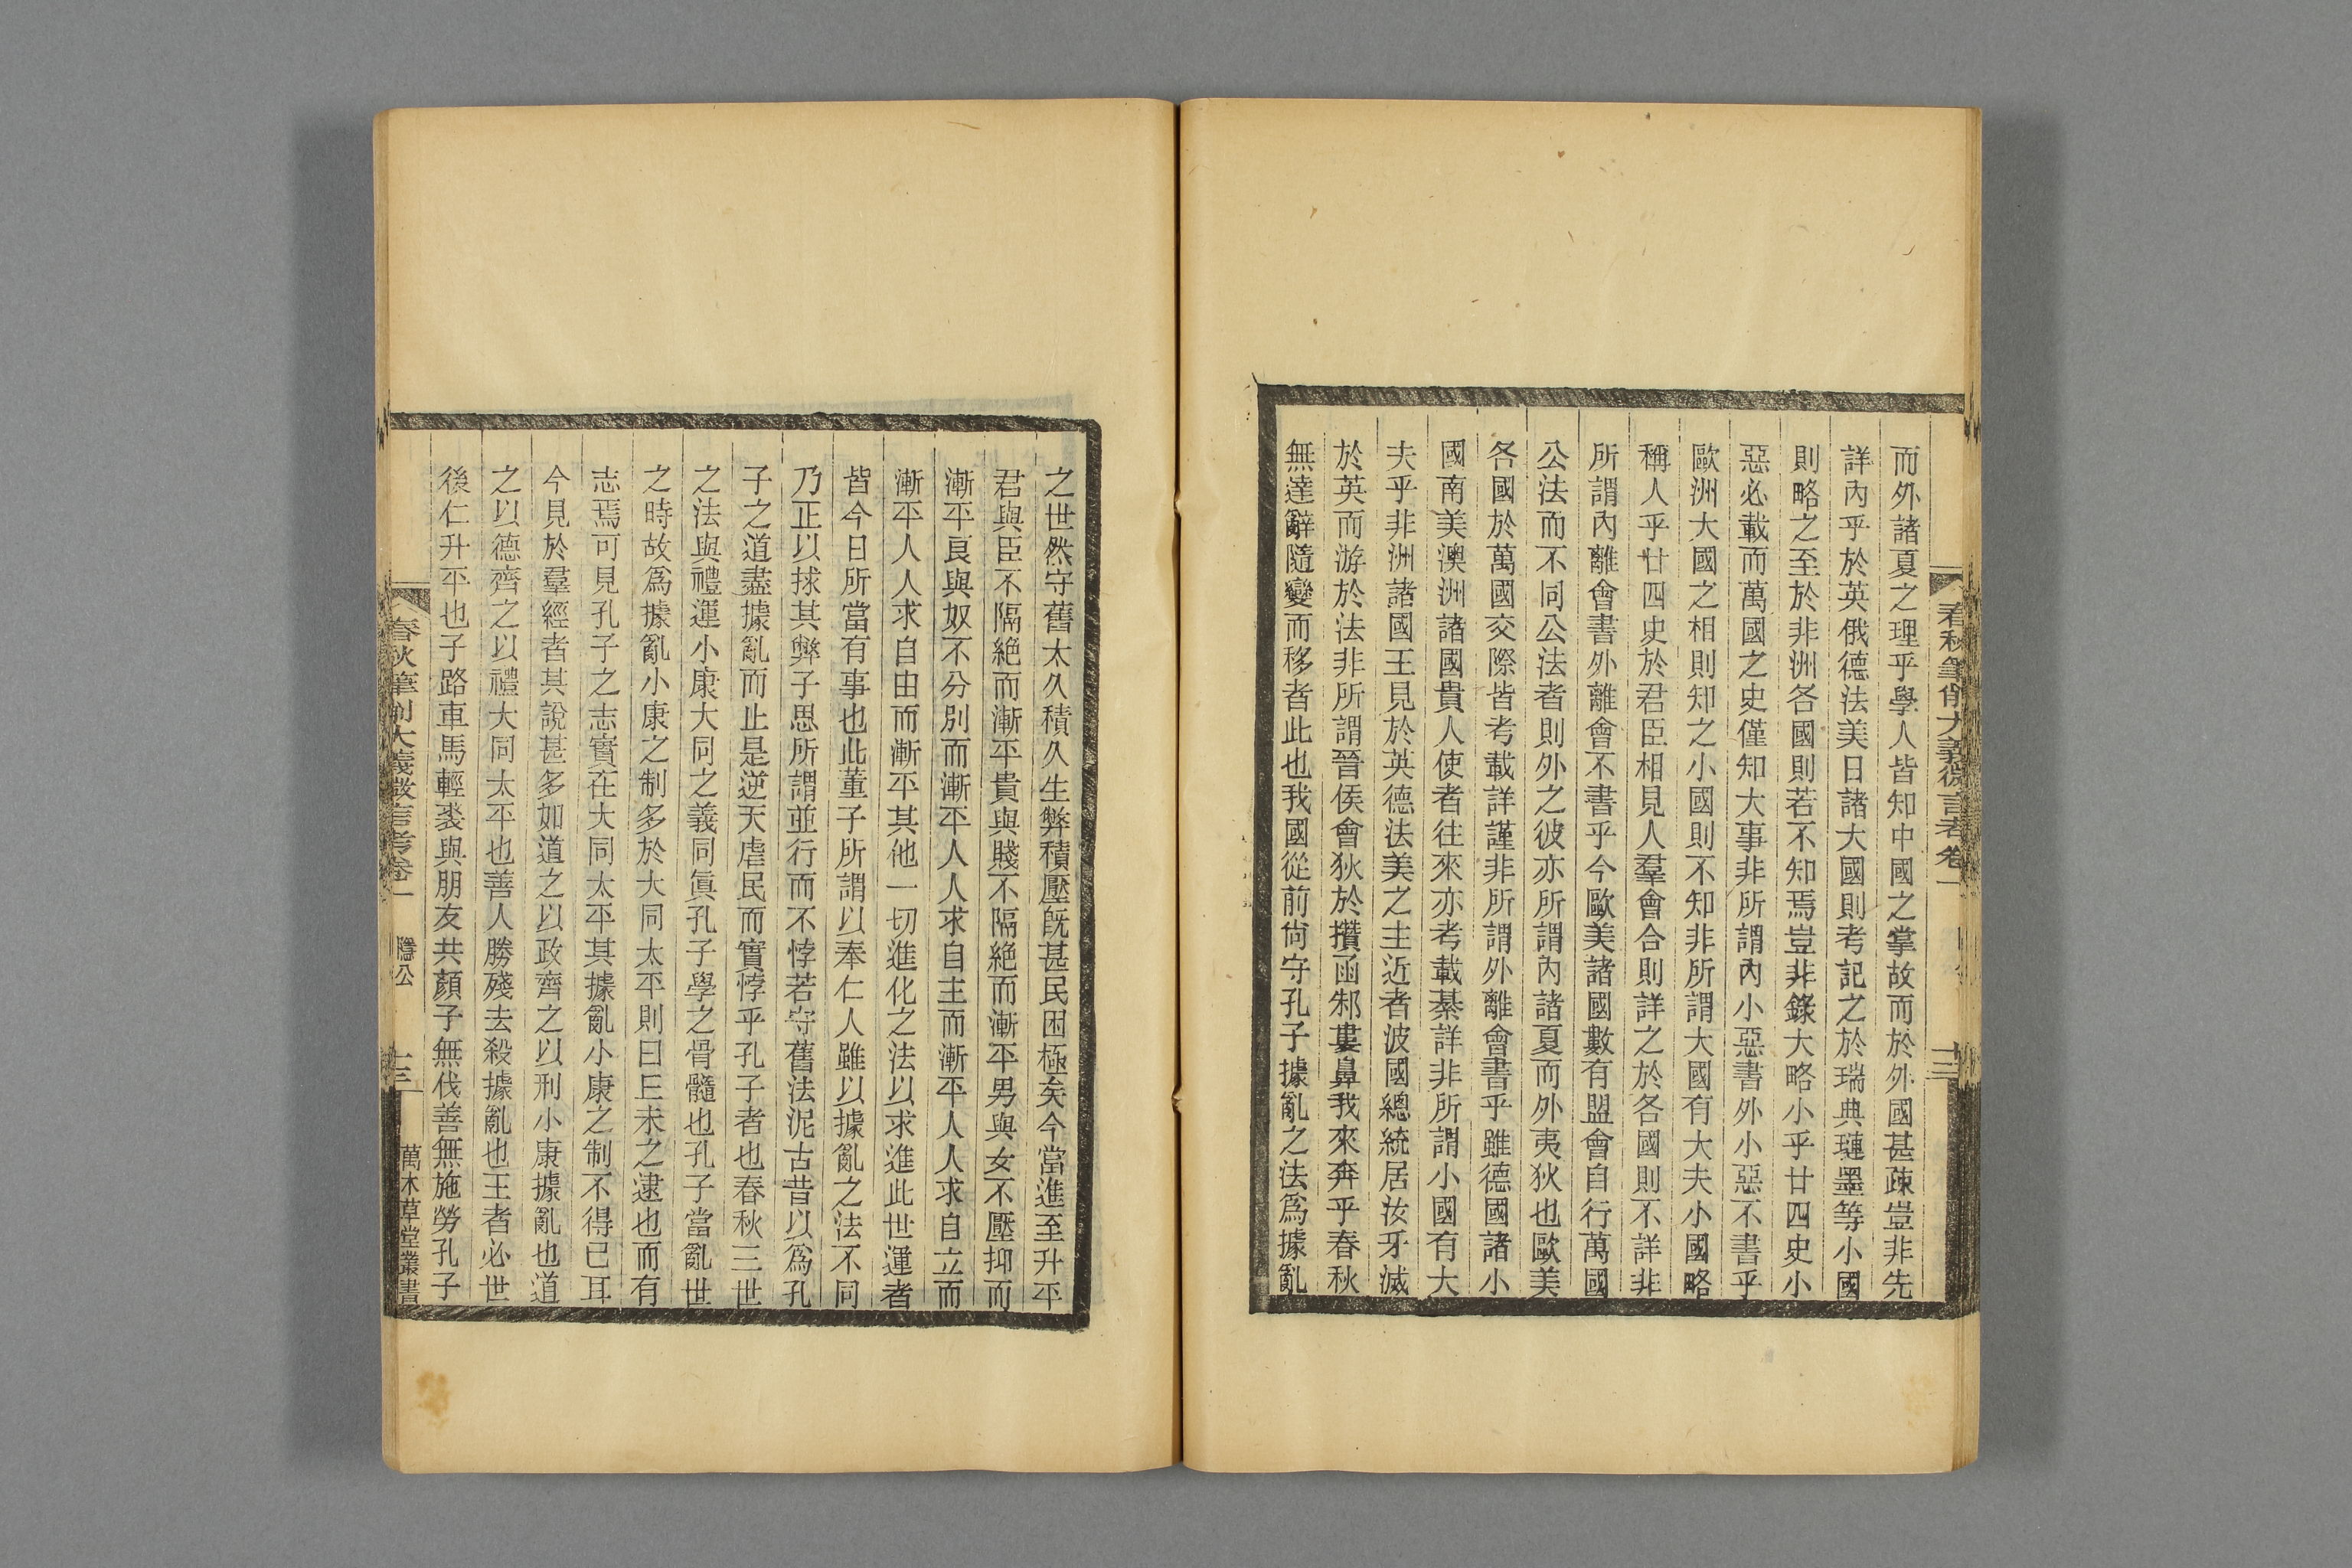 春秋筆削大義微言考卷一
而外諸夏之理乎學人皆知中國之掌故而於外國甚疎豈非先
詳內乎於英俄德法美日諸大國則考記之於瑞典璉墨等小國
則略之至於非洲各國則若不知焉豈非錄大略小乎廿四史小
惡必載而萬國之史僅知大事非所謂內小惡書外小惡不書乎
歐洲大國之相則知之小國則不知非所謂大國有大夫小國略
稱人乎廿四史於君臣相見人羣會合則詳之於各國則不詳非
所謂內離會書外離會不書乎今歐美諸國數有盟會自行萬國
公法而不同公法者則外之彼亦所謂內諸夏而外夷狄也歐美
各國於萬國交際皆考載詳謹非所謂外離會書乎雖德國諸小
國南美澳洲諸國貴人使者往來亦考載綦詳非所謂小國有大
夫乎非洲諸國王見於英德法美之主近者波國總統居汝牙滅
於英而游於法非所謂晉侯會狄於攢函邾婁鼻我來奔乎春秋
無達辭隨變而移者此也我國從前尚守孔子據亂之法爲據亂
之世然守舊太久積久生弊積壓旣甚民困極矣今當進至升平
君與臣不隔絶而漸平貴與賤不隔絶而漸平男與女不壓抑而
漸平良與奴不分別而漸平人人求自主而漸平人人求自立而
漸平人人求自由而漸平其他一切進化之法以求進此世運者
皆今日所當有事也此董子所謂以奉仁人雖以據亂之法不同
乃正以捄其弊子思所謂並行而不悖若守舊法泥古昔以爲孔
子之道盡據亂而止是逆天虐民而實悖乎孔子者也春秋三世
之法與禮運小康大同之義同眞孔子學之骨髓也孔子當亂世
之時故爲據亂小康之制多於大同太平則曰丘未之逮也而有
志焉可見孔子之志實在大同太平其據亂小康之制不得已耳
今見於羣經者其說甚多如道之以政齊之以刑小康據亂也道
之以德齊之以禮大同太平也善人勝殘去殺據亂也王者必世
後仁升平也子路車馬輕裘與朋友共顏子無伐善無施勞孔子
春秋筆削大義微言考卷一
隱公
十三
萬木草堂叢書